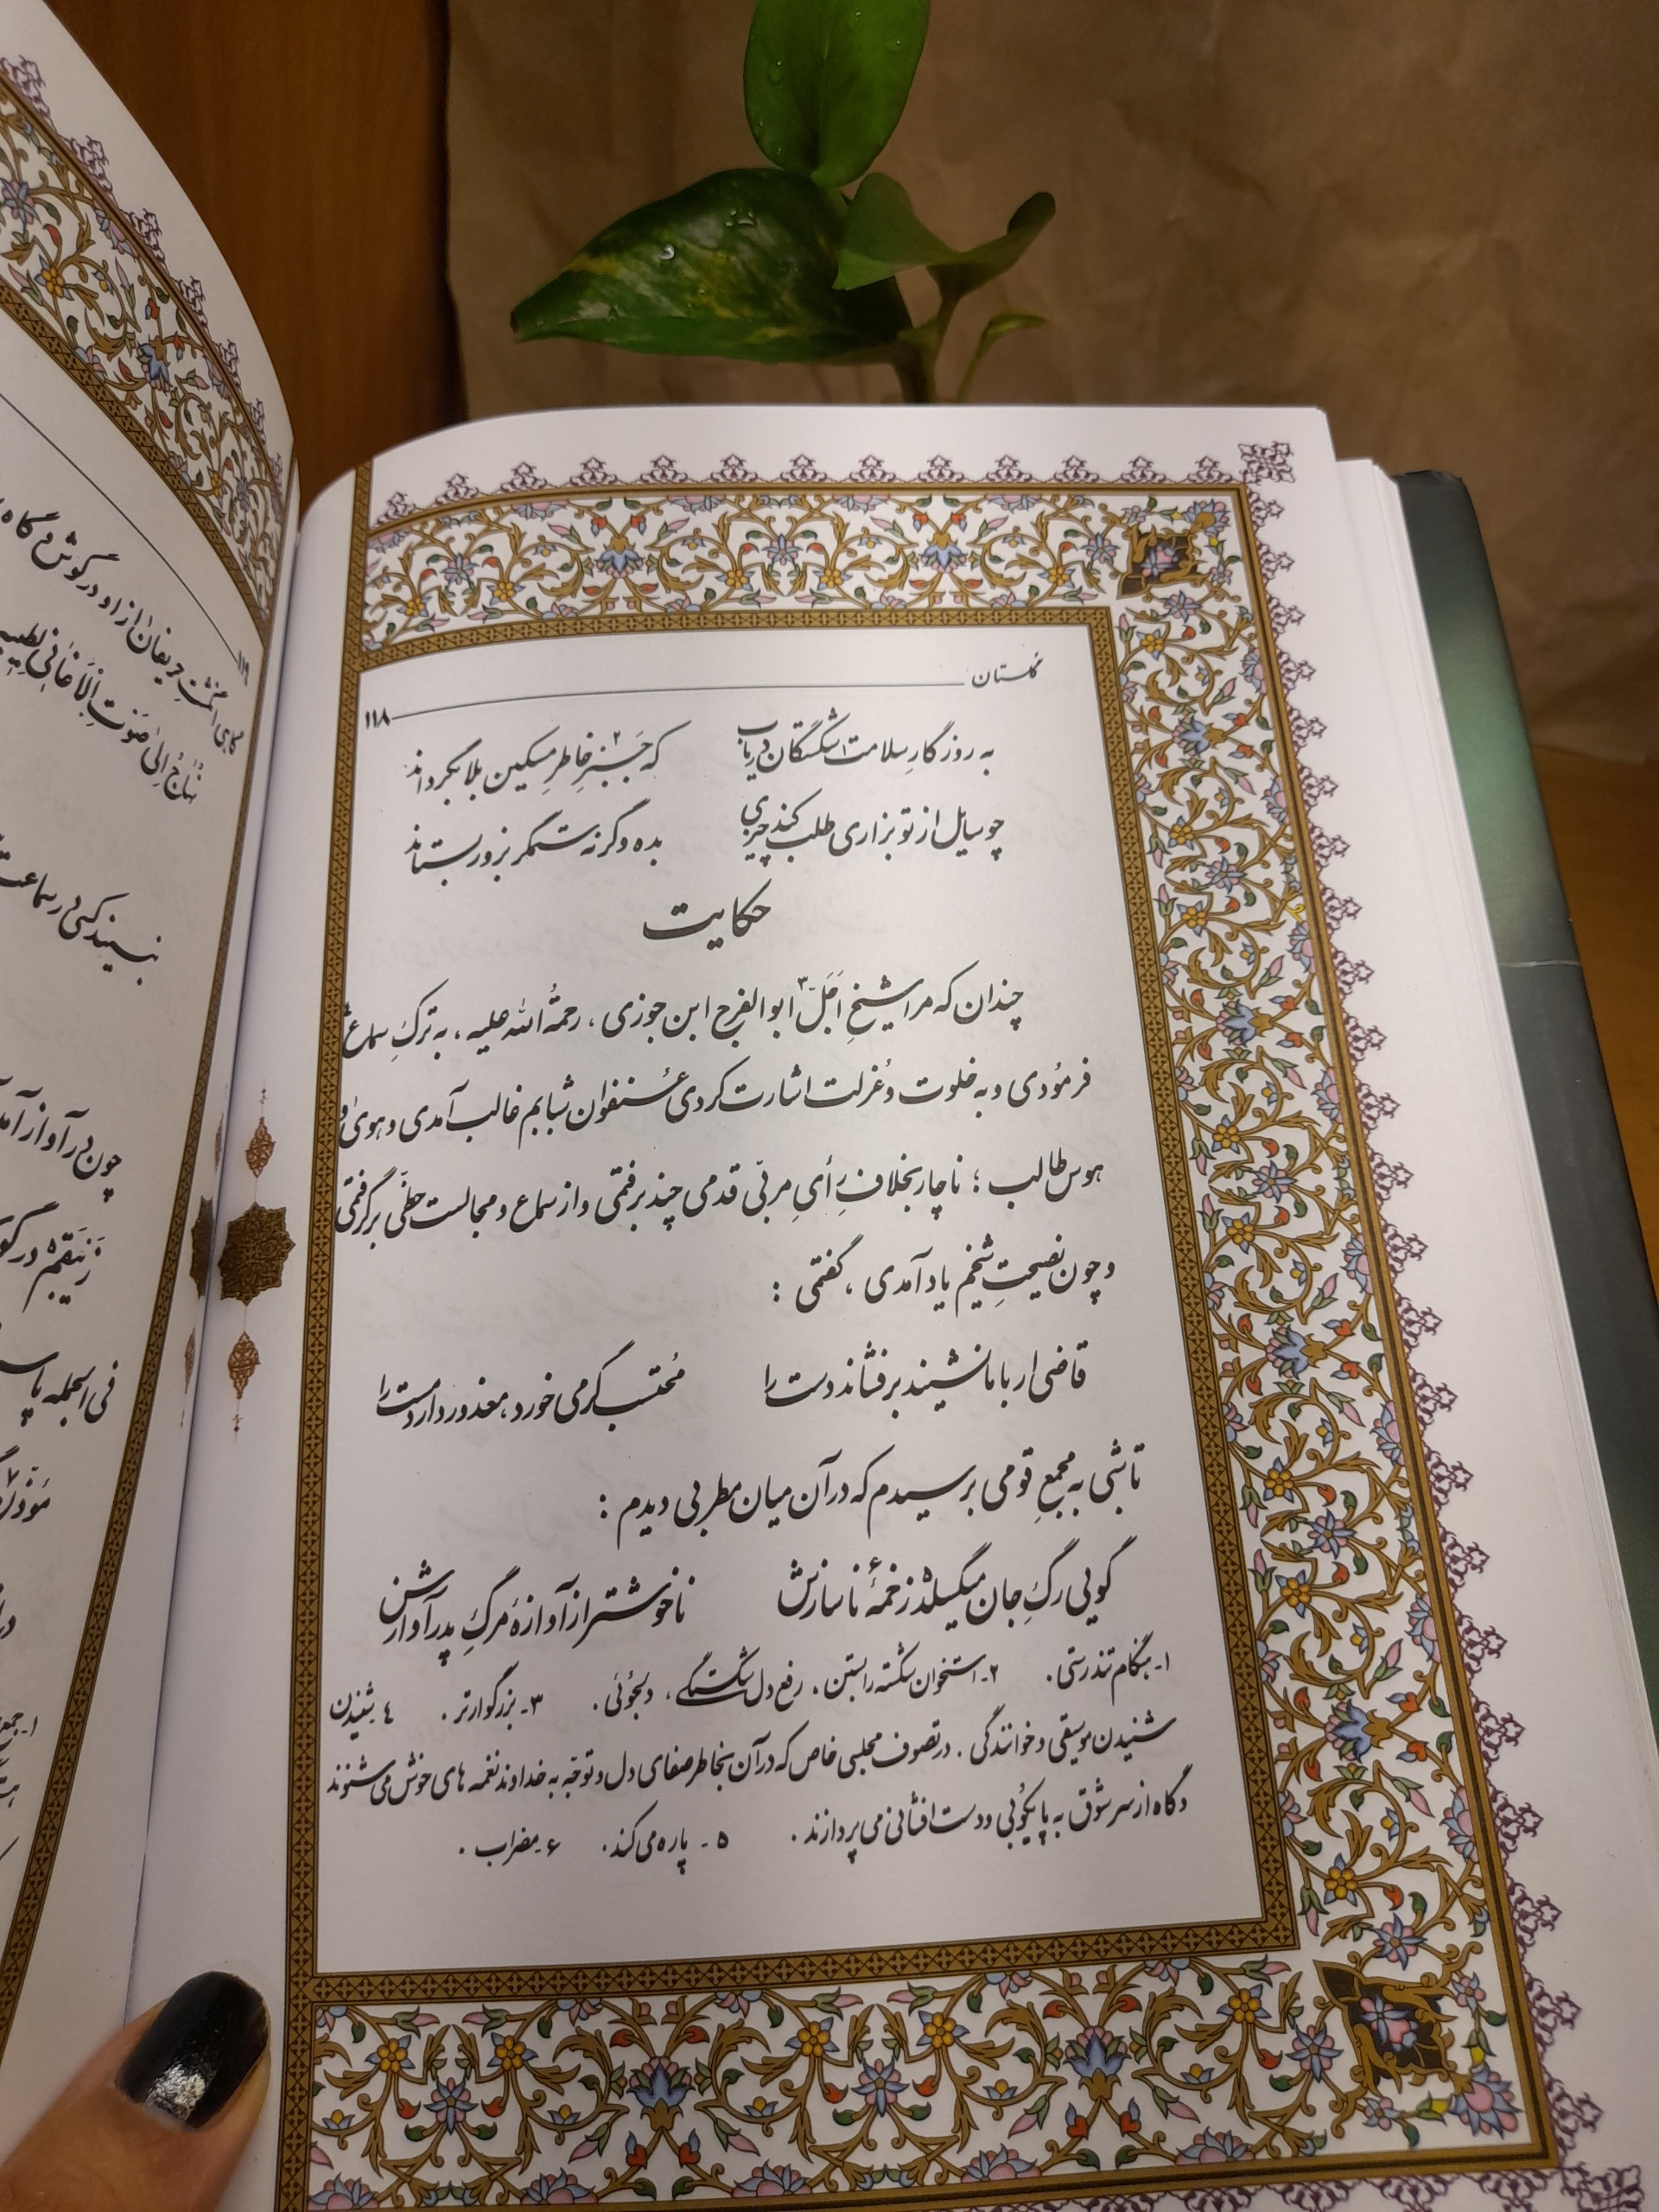 گلستان
۱۱۸
به روزگارِ سلامت۱ شکستگان دریاب
که جَبْرِ۲ خاطرِ مسکین بلا بگرداند
چو سایل از تو بزاری طلب کند چیزی
بده وگرنه ستمگر بزور بستاند
حکایت
چندان که مرا شیخِ اَجَلّ۳ ابوالفرج ابن جوزی، رحمةُ الله علیه، به ترکِ سماع۴
فرمُودی و به خلوت و عُزلت اشارت کردی عُنفوانِ شبابم غالب آمدی و هویٰ و
هوس طالب؛ ناچار بخلافِ رأیِ مربّی قدمی چند برفتمی و از سماع و مجالست حظّی برگرفتمی
و چون نصیحتِ شیخم یاد آمدی، گفتمی:
قاضی ار با ما نشیند برفشاند دست را
مُحتسب گر می خورد، معذور دارد مست را
تا شبی به مجمعِ قومی برسیدم که در آن میان مطربی دیدم:
گویی رگِ جان میگسلد۵ زخمهٔ۶ ناسازش
ناخوشتر از آوازهٔ مرگِ پدر آوازش
۱- هنگام تندرستی. ۲- استخوان شکسته را بستن. رفع دل شکستگی، دلجوئی. ۳- بزرگوارتر. ۴- شنیدن
شنیدن موسیقی و خوانندگی. در تصوف مجلسی خاص که در آن بخاطر صفای دل و توجّه به خداوند نغمه های خوش می شنوند
و گاه از سر شوق به پایکُوبی و دست افشانی می پردازند. ۵- پاره می کند. ۶- مضراب.
۱۱۹
گاهی انگشتِ حریفان از او در گوش و گاه
نُهاجُ اِلیٰ صَوْتِ الْاَغانی لِطیبِه
نبیند کسی در سماعت
چون در آواز آمد
زیبقم در گوش
فی الجمله پاس